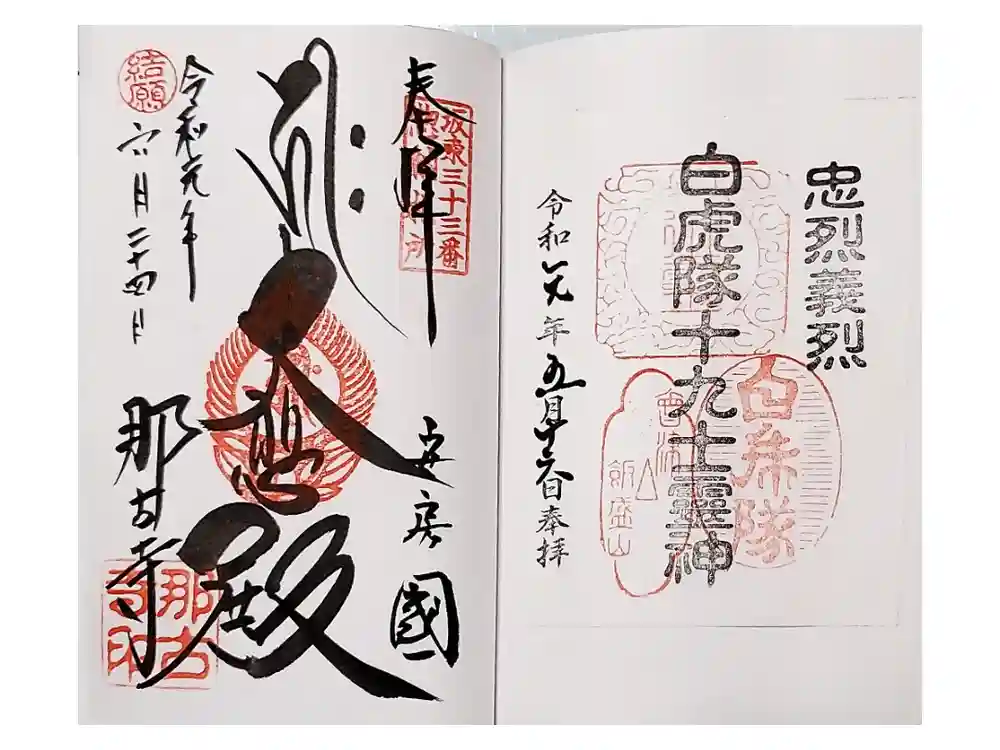 忠烈義烈
白虎隊十九士霊神
令和元年五月十六日奉拝
白乕隊
飯盛山
奉拝
坂東三十三番
安房國
大悲殿
令和元年
六月二十四日
結願
那古寺
那古
寺印